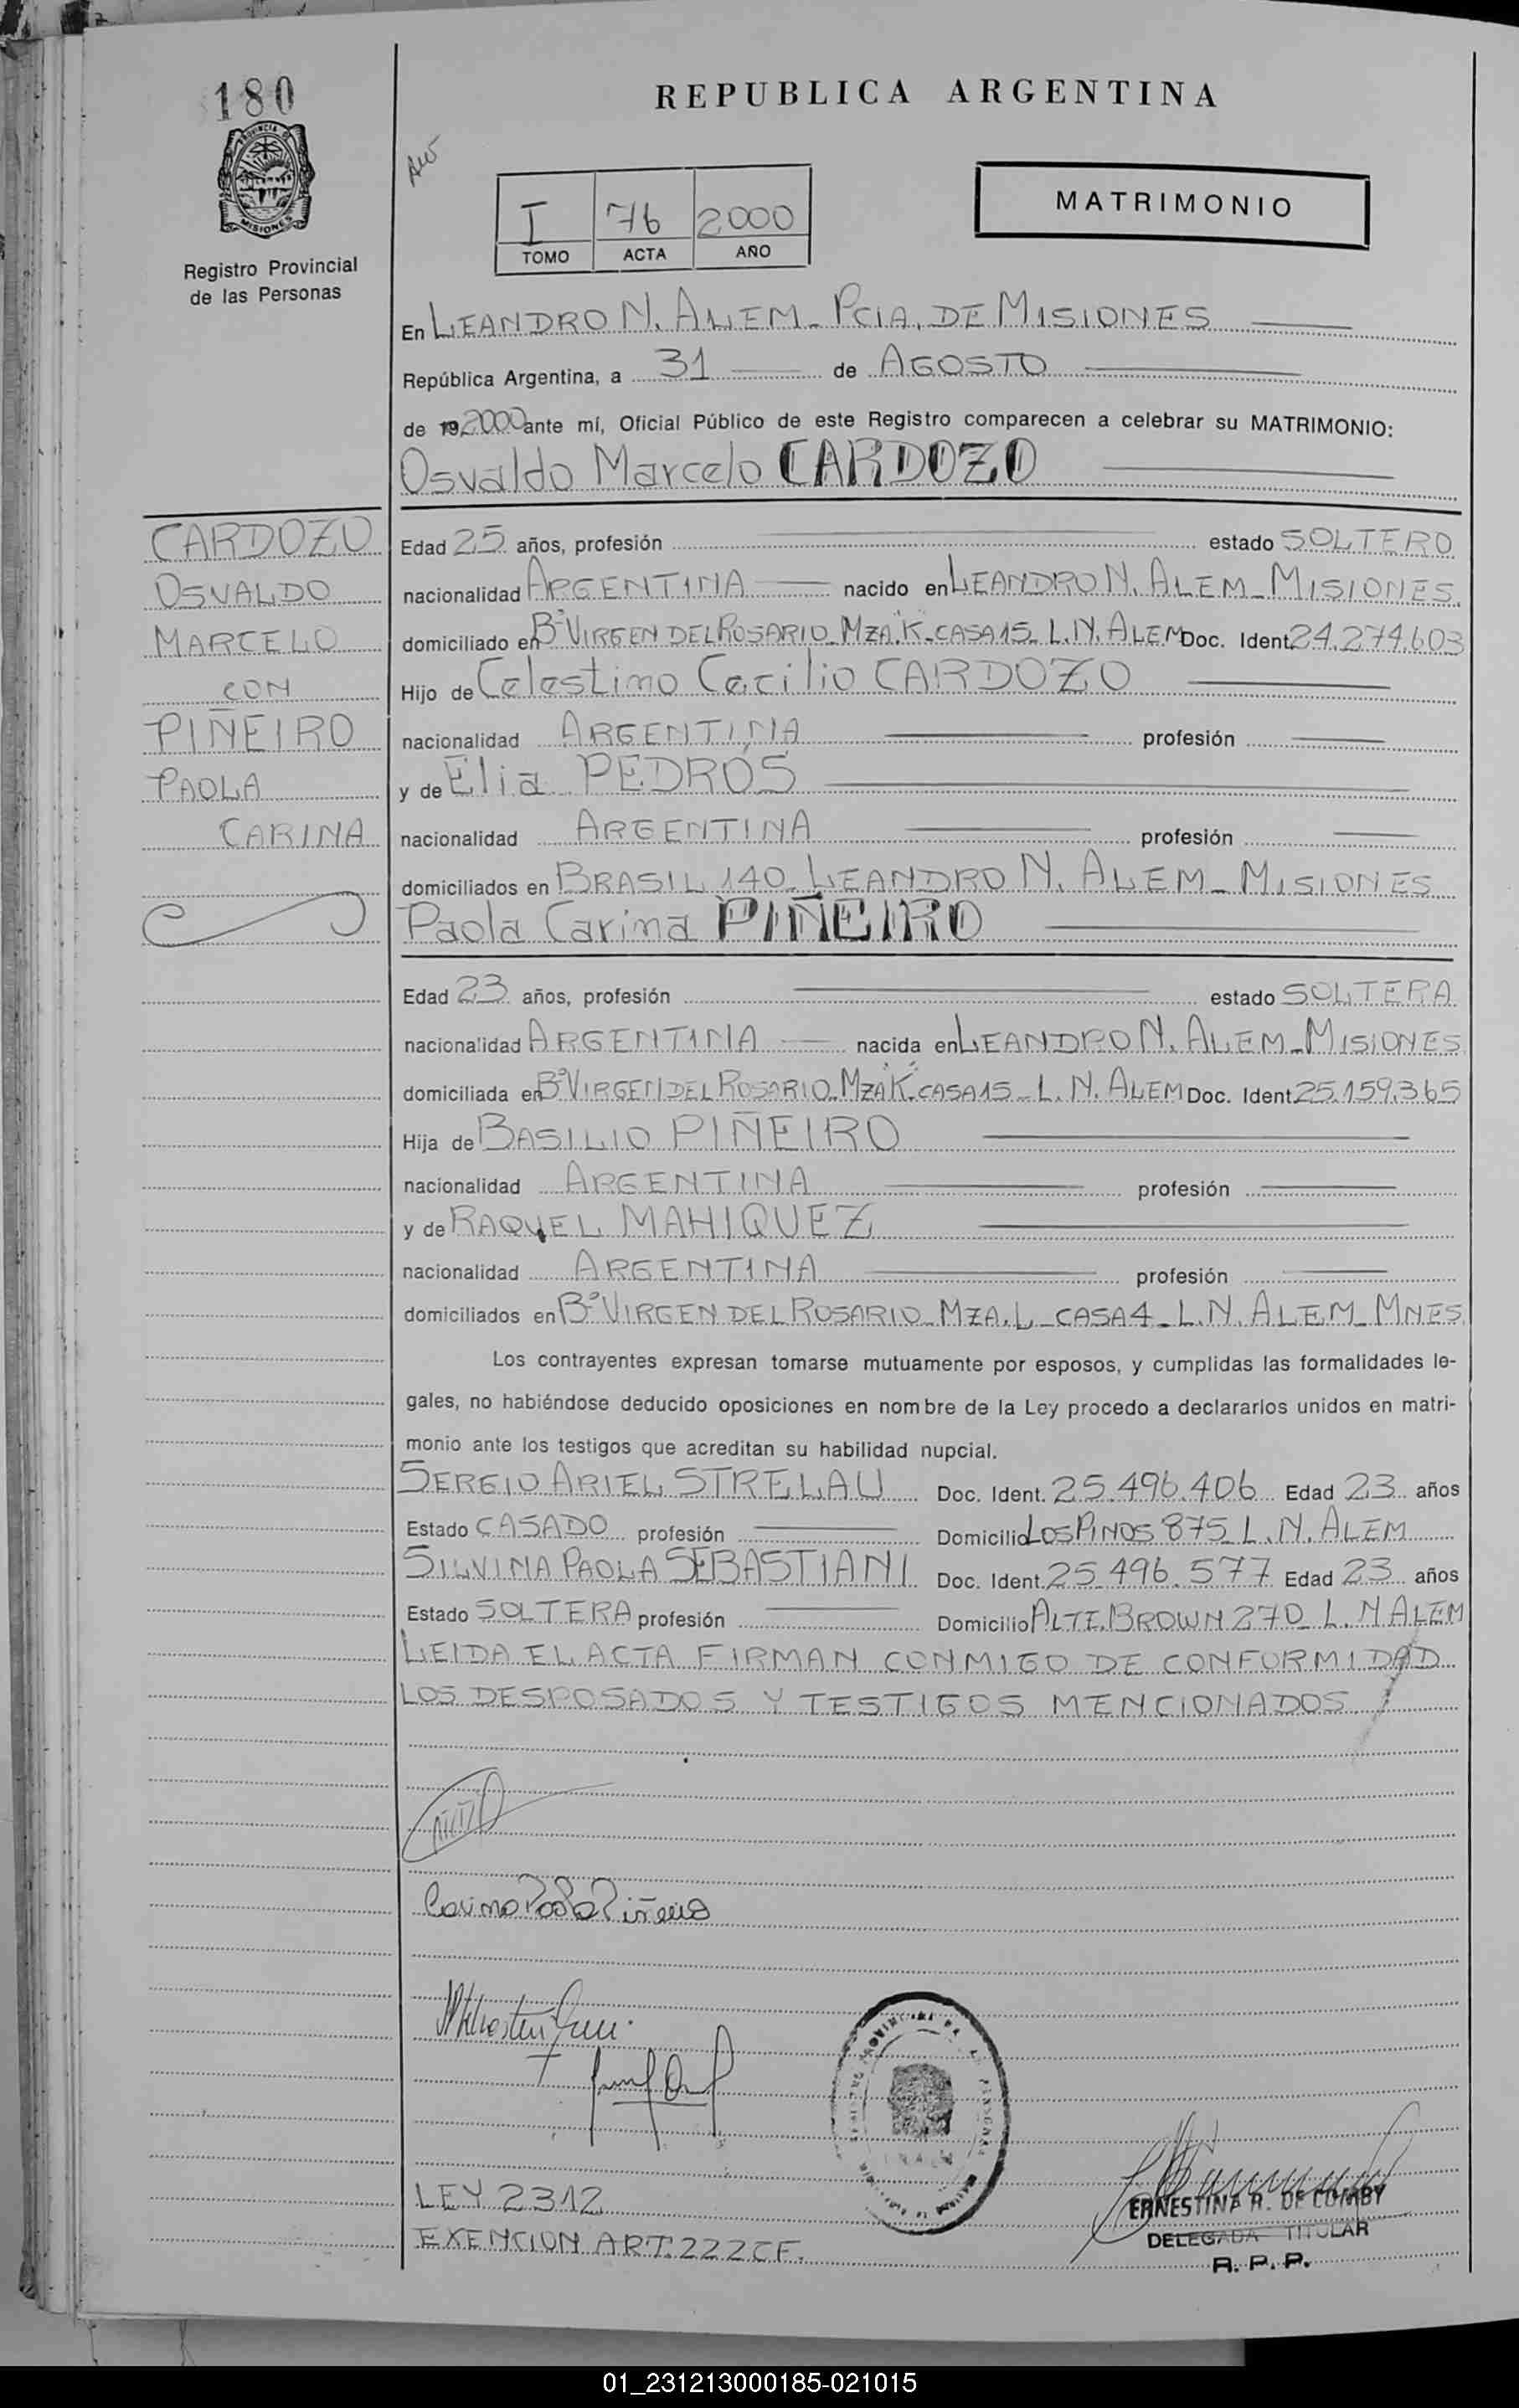 180
REPUBLICA ARGENTINA
MATRIMONIO
I 76 2000
TOMO ACTA AÑO
PROVINCIA DE
MISIONES
Registro Provincial
de las Personas
En LEANDRO N. ALEM_ PCIA. DE MISIONES
República Argentina, a 31 de AGOSTO
de 19 2000 ante mí, Oficial Público de este Registro comparecen a celebrar su MATRIMONIO:
Osvaldo Marcelo CARDOZO
CARDOZO
OSVALDO
MARCELO
CON
PIÑEIRO
PAOLA
CARINA
Edad 25 años, profesión estado SOLTERO
nacionalidad ARGENTINA nacido en LEANDRO N. ALEM_ MISIONES
domiciliado en Bº VIRGEN DEL ROSARIO_ MZA."K"_CASA 15_ L.N. ALEM Doc. Ident. 24.274.603
Hijo de Celestino Cecilio CARDOZO
nacionalidad ARGENTINA profesión
y de Elia PEDRÓS
nacionalidad ARGENTINA profesión
domiciliados en BRASIL 140_ LEANDRO N. ALEM_ MISIONES
Paola Carina PIÑEIRO
Edad 23 años, profesión estado SOLTERA
nacionalidad ARGENTINA nacida en LEANDRO N. ALEM_ MISIONES
domiciliada en Bº VIRGEN DEL ROSARIO_ MZA"K"_CASA 15_ L. N. ALEM Doc. Ident. 25.159.365
Hija de BASILIO PIÑEIRO
nacionalidad ARGENTINA profesión
y de RAQUEL MAHIQUEZ
nacionalidad ARGENTINA profesión
domiciliados en Bº VIRGEN DEL ROSARIO_ MZA. L_ CASA 4_ L.N. ALEM_ MNES.
Los contrayentes expresan tomarse mutuamente por esposos, y cumplidas las formalidades le-
gales, no habiéndose deducido oposiciones en nombre de la Ley procedo a declararlos unidos en matri-
monio ante los testigos que acreditan su habilidad nupcial.
SERGIO ARIEL STRELAU Doc. Ident. 25.496.406 Edad 23 años
Estado CASADO profesión Domicilio LOS PINOS 875_ L.N. ALEM
SILVINA PAOLA SEBASTIANI Doc. Ident. 25.496.577 Edad 23 años
Estado SOLTERA profesión Domicilio ALTE. BROWN 270_ L. N ALEM
LEIDA EL ACTA FIRMAN CONMIGO DE CONFORMIDAD
LOS DESPOSADOS Y TESTIGOS MENCIONADOS.
Carina Paola Piñeiro
LEY 2312
EXENCION ART. 222 CF.
ERNESTINA R. DE LUMBY
DELEGADA TITULAR
R. P. P.
01_231213000185-021015